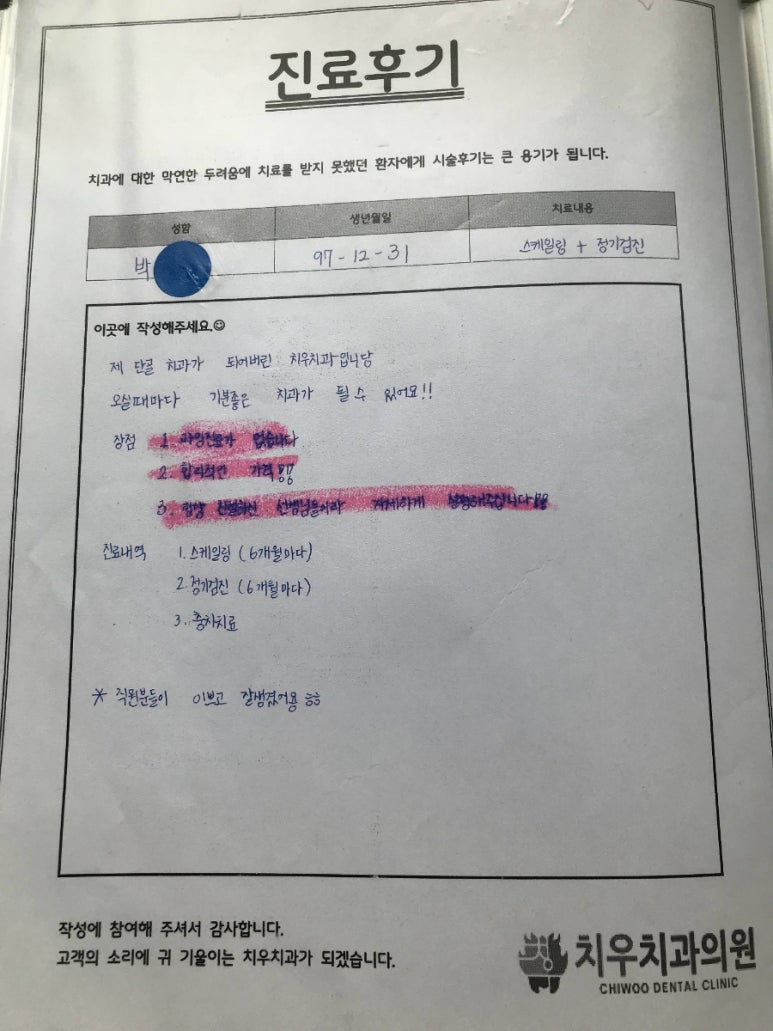 진료후기
치과에 대한 막연한 두려움에 치료를 받지 못했던 환자에게 시술후기는 큰 용기가 됩니다.
성함 생년월일 치료내용
박 97-12-31 스케일링 + 정기검진
이곳에 작성해주세요.☺
제 단골 치과가 되어버린 치우치과입니당
오실때마다 기분좋은 치과가 될 수 있어요!!
장점 1. 과잉진료가 없습니다
2. 합리적인 가격
3. 항상 친절하신 선생님들이라 자세하게 설명해주십니다
진료내역 1. 스케일링 (6개월마다)
2. 정기검진 (6개월마다)
3. 충치치료
* 직원분들이 이쁘고 잘생겼어용 ㅎㅎ
작성에 참여해 주셔서 감사합니다.
고객의 소리에 귀 기울이는 치우치과가 되겠습니다.
치우치과의원
CHIWOO DENTAL CLINIC